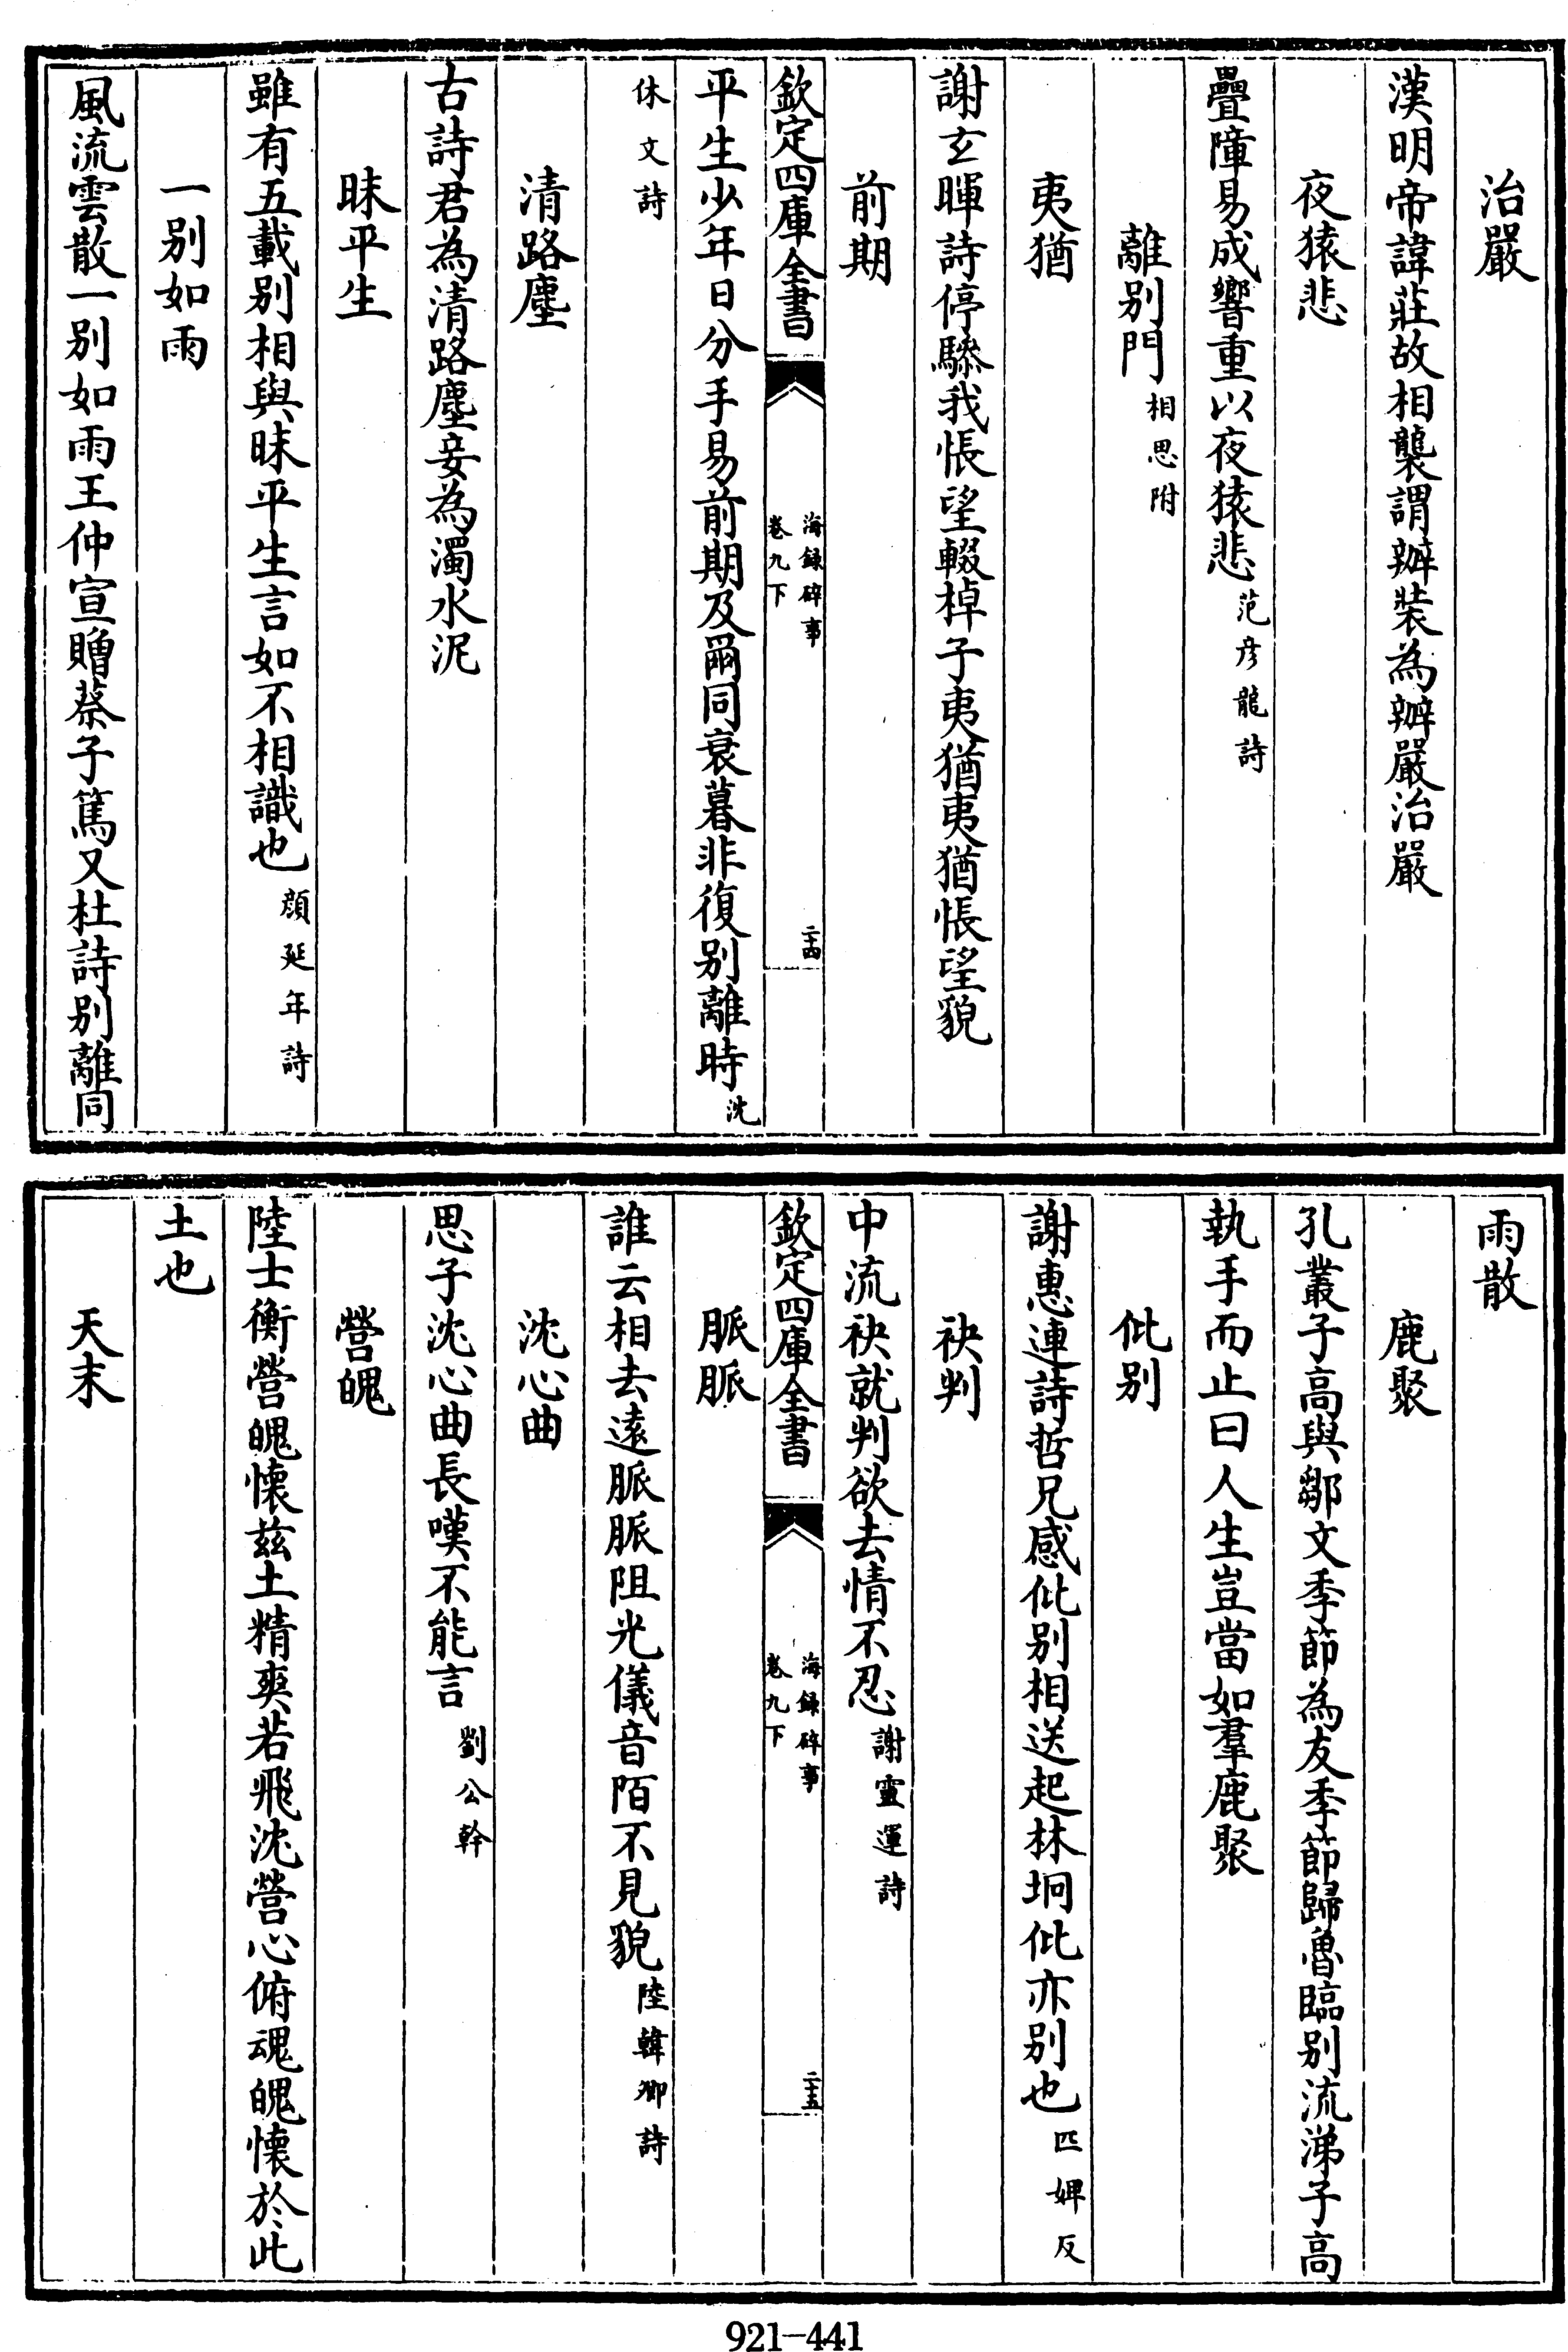 治嚴
漢明帝諱莊故相襲謂辦裝為辦嚴治嚴
夜猿悲
疊障易成響重以夜猿悲范彦龍詩
離别門相思附
夷猶
謝玄暉詩停驂我悵望輟棹子夷猶夷猶悵望貌
前期
欽定四庫全書
海録碎事
卷九下
二十四
平生少年日分手易前期及爾同衰暮非復别離時沈
休文詩
清路塵
古詩君為清路塵妾為濁水泥
昧平生
雖有五載别相與昧平生言如不相識也顔延年詩
一别如雨
風流雲散一别如雨王仲宣贈蔡子篤又杜詩别離同
雨散
鹿聚
孔叢子高與鄒文季節為友季節歸魯臨别流涕子高
執手而止曰人生豈當如羣鹿聚
仳别
謝惠連詩哲兄感仳别相送起林坰仳亦别也匹婢反
袂判
中流袂就判欲去情不忍謝靈運詩
欽定四庫全書
海録碎事
卷九下
二十五
脈脈
誰云相去遠脈脈阻光儀音陌不見貌陸韓卿詩
沈心曲
思子沈心曲長嘆不能言劉公幹
營魄
陸士衡營魄懷兹土精爽若飛沈營心俯魂魄懷於此
土也
天末
921-441